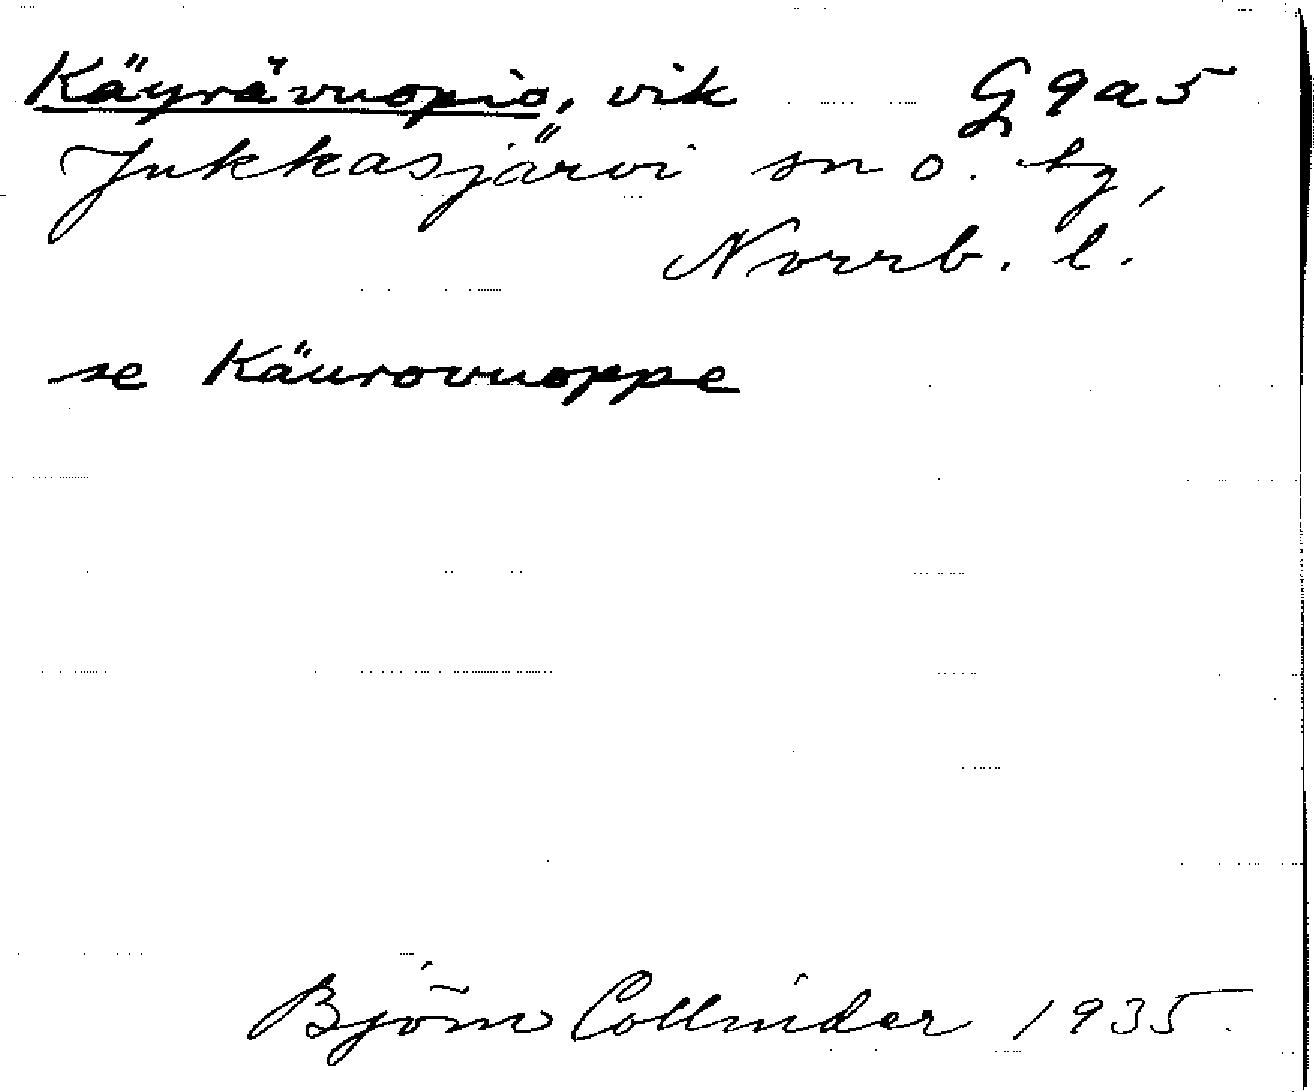 Käyrävuopio, vik G 9 a 5
Jukkasjärvi sn o. tg,
Norrb. l.
se Käurovuoppe
Björn Collinder 1935.